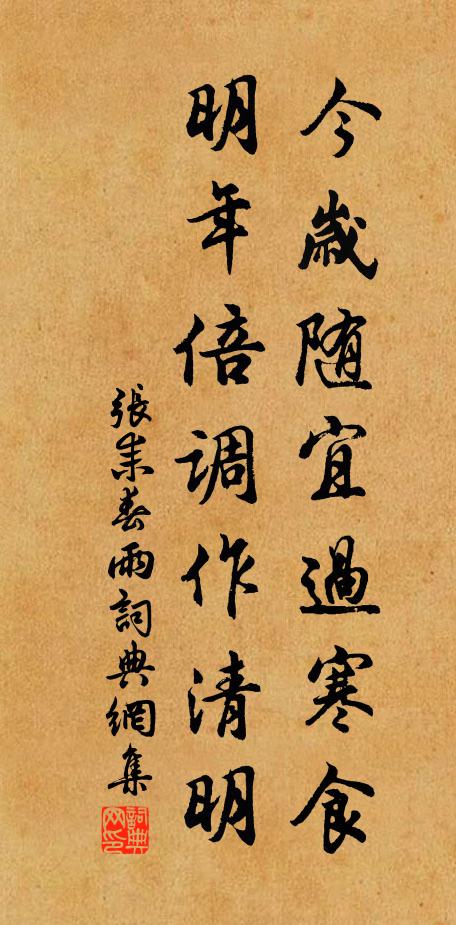 今歲随宜過寒食
明年倍調作清明
張耒春雨詞典網集
詞典網印